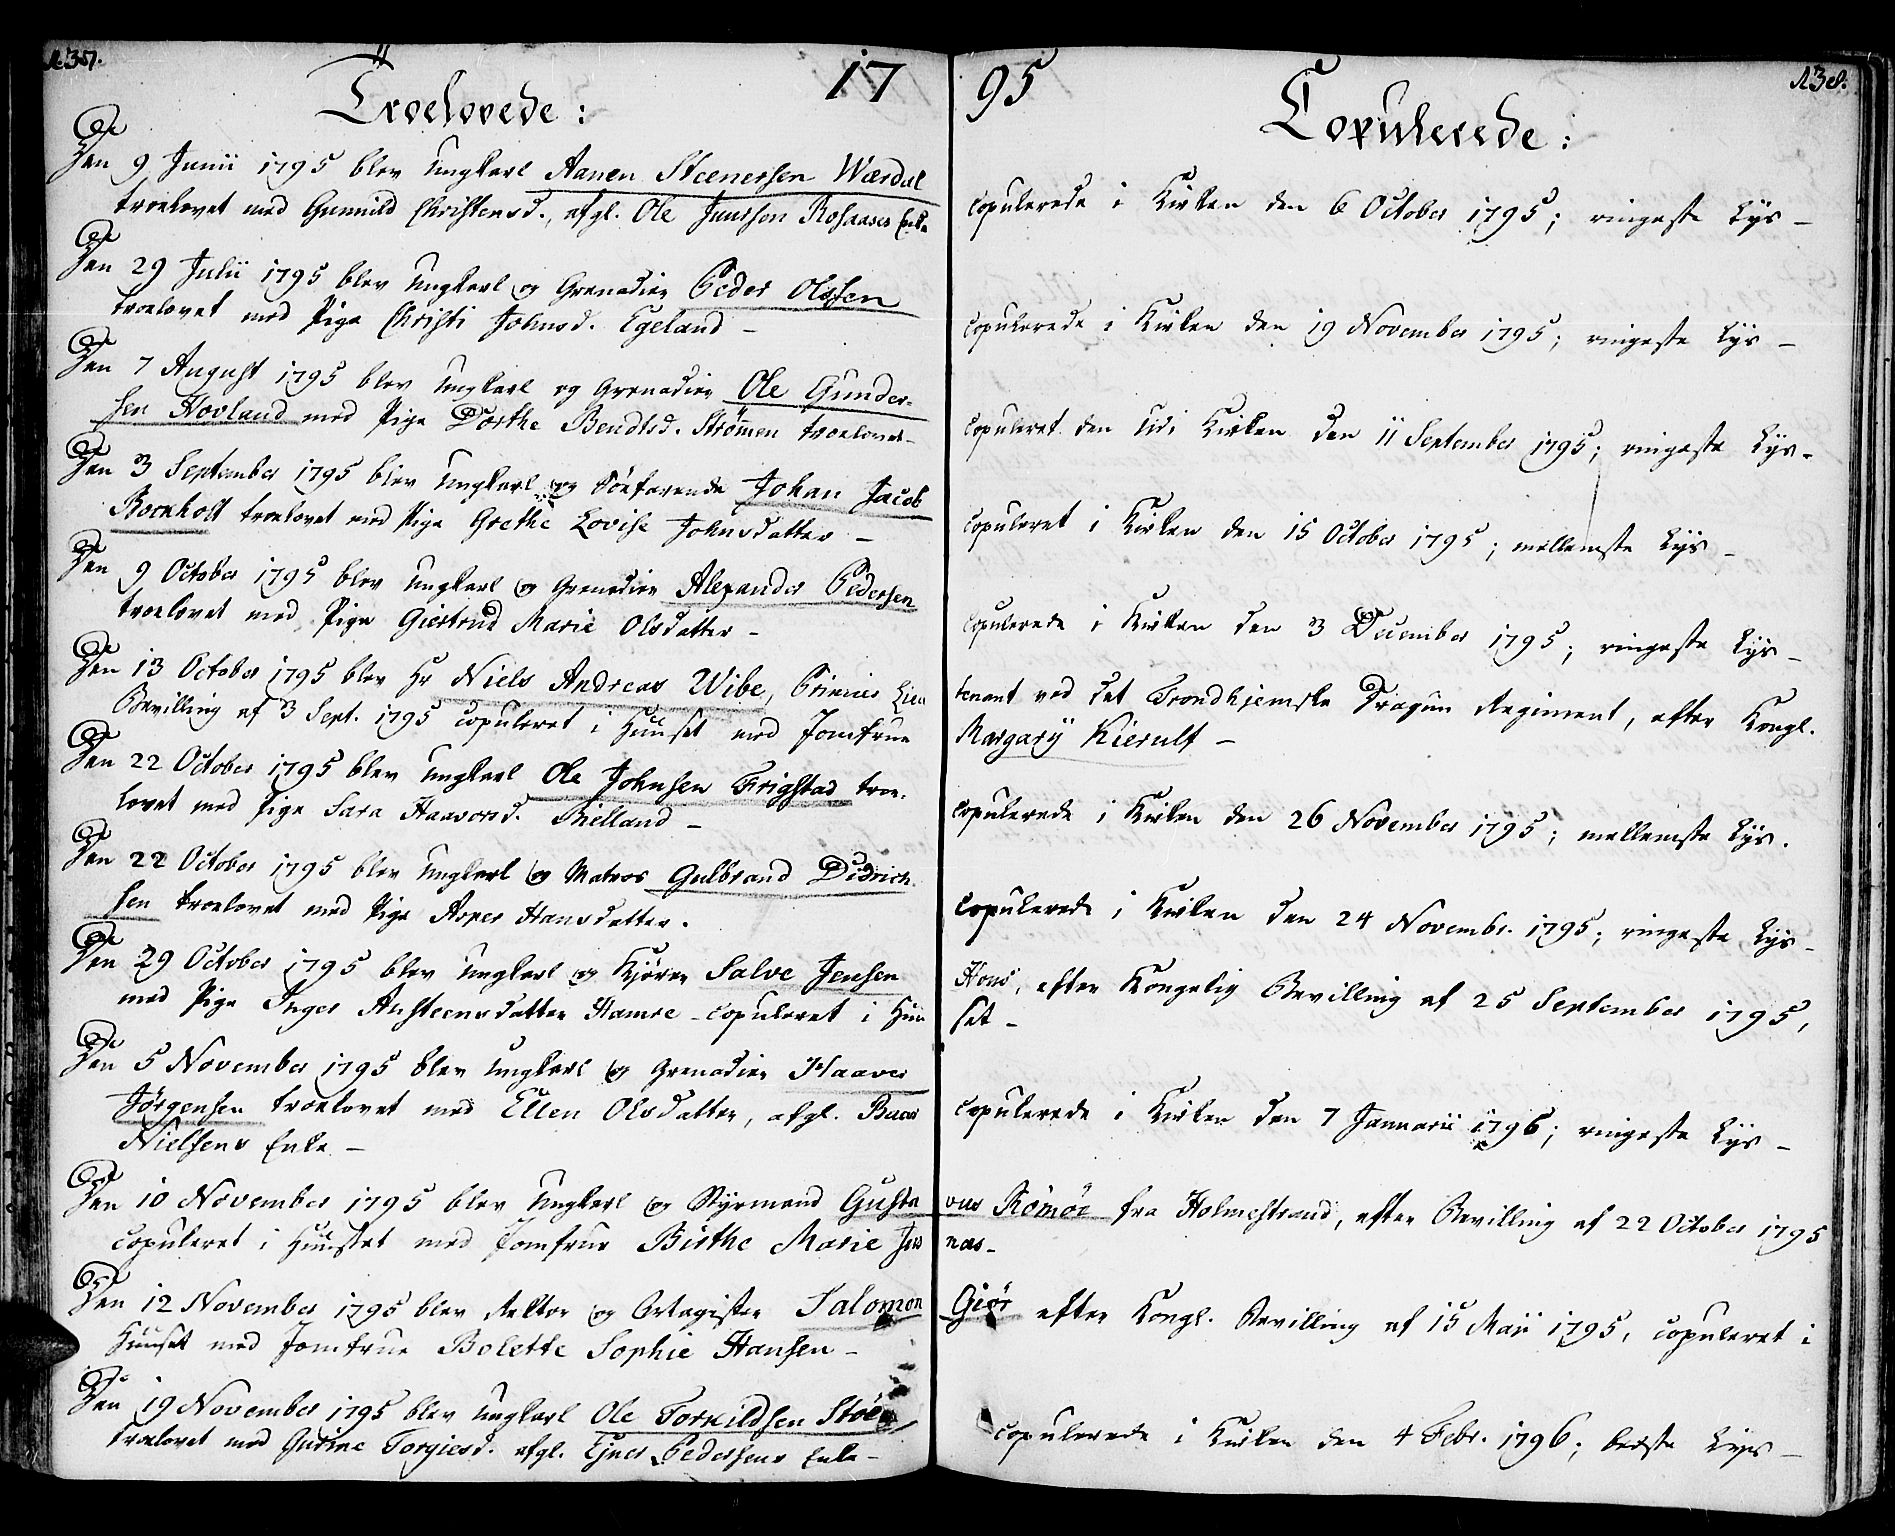 137.
Troelovede:
17
Den 9 Junii 1795 blev Ungkarl Aanen Steenersen Wærdal
troelovet med Gunnild Christensd., afgl. Ole Juursen Rosaases Enke
Den 29 Julii 1795 blev Ungkarl og Grenadier Peder Olssen
troelovet med Pige Christi Johnsd. Egeland –
Den 7 August 1795 blev Ungkarl og Grenadier Ole Gunder-
sen Hovland med Pige Dorthe Bendtsd. Strømen troelovet –
Den 3 September 1795 blev Ungkarl og Söefarende Johan Jacob
Bornholt troelovet med Pige Grethe Lovise Johnsdatter –
Den 9 October 1795 blev Ungkarl og Grenadier Alexander Pedersen
troelovet med Pige Giertrud Marie Olsdatter –
Den 13 October 1795 blev Hr Niels Andreas Wibe, Primier Lieu
Bevilling af 3 Sept. 1795 copuleret i Huuset med Jomfrue
Den 22 October 1795 blev Ungkarl Ole Johnsen Frigstad troe-
lovet med Pige Sara Haavorsd. Bielland –
Den 22 October 1795 blev Ungkarl og Matros Gulbrand Didrich-
sen troelovet med Pige Asper Hansdatter.
Den 29 October 1795 blev Ungkarl og Kjører Salve Jensen
med Pige Inger Ansteensdatter Hamre – copuleret i Huu
Den 5 November 1795 blev Ungkarl og Grenadier Haaver
Jørgensen troelovet med Ellen Olsdatter, afgl. Baar
Nielsens Enke –
Den 10 November 1795 blev Ungkarl og Styrmand Gusta
copuleret i Huuset med Jomfrue Birthe Marie Jen
Den 12 November 1795 blev Rektor og Artagister Salomon
Huuset med Jomfrue Bolette Sophie Hansen –
Den 19 November 1795 blev Ungkarl Ole Torkildsen Støle
troelovet med Gurine Torgiersd. afgl. Ejner Pedersens Enke –
95
Copulerede:
138.
copulerede i Kirken den 6 October 1795; ringeste Lys –
copulerede i Kirken den 19 November 1795; ringeste Lys –
copuleret den udi Kirken den 11 September 1795; ringeste Lys –
copuleret i Kirken den 15 October 1795; mellemste Lys –
copulerede i Kirken den 3 December 1795; ringeste Lys –
tenant ved det Trondhjemske Dragun Regiment, efter Kongl.
Margary Kierulf –
copulerede i Kirken den 26 November 1795; mellemste Lys.
copulerede i Kirken den 24 Novembr. 1795; ringeste Lys –
Hond, efter Kongelig Bevilling af 25 September 1795,
set –
copulerede i Kirken den 7 Januarii 1796; ringeste Lys –
vus Römör fra Holmestrand, efter Bevilling af 22 October 1795
næs –
Giør efter Kongl. Bevilling af 15 Maii 1795, copuleret i
copulerede i Kirken den 4 Febr. 1796; bedste Lys –